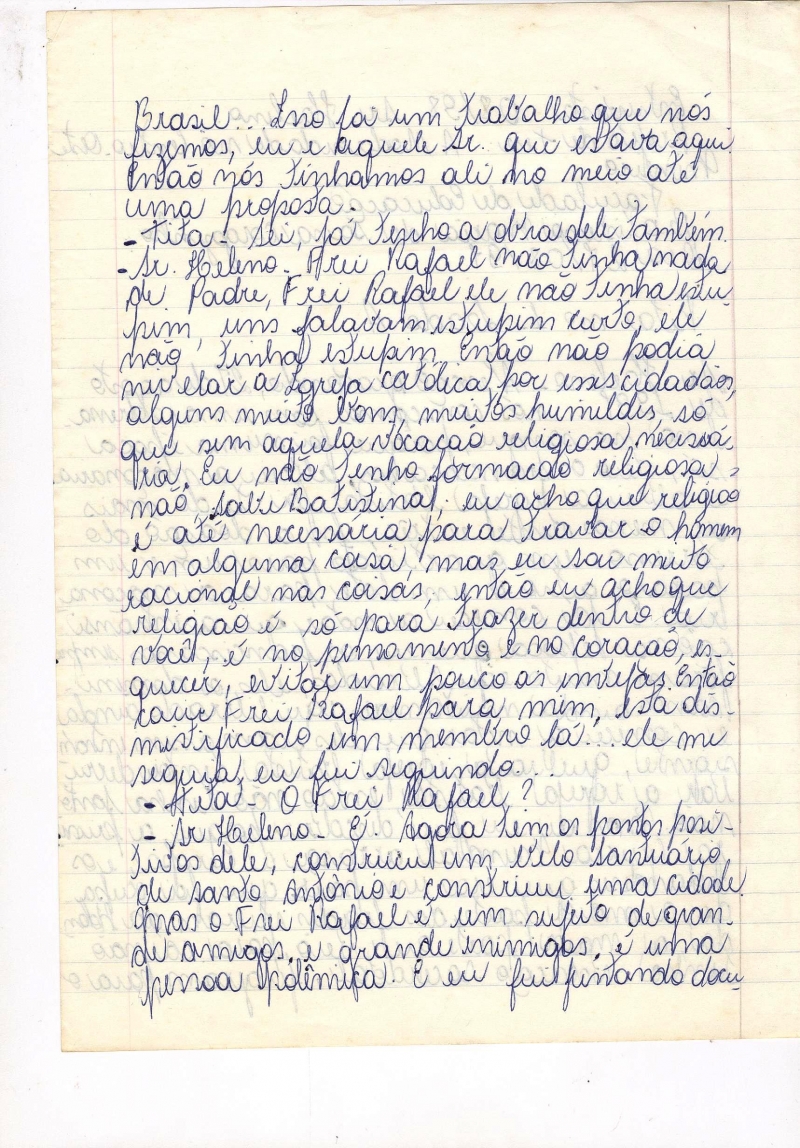 Brasil... Isso foi um trabalho que nós
fizemos, eu e aquele Sr. que estava aqui.
Então nós tinhamos ali no meio até
uma proposta.
- Tita - Sei, já tenho a obra dele também.
- Sr. Heleno - Frei Rafael não tinha nada
de Padre, Frei Rafael ele não tinha estu-
pim, uns falavam estupim curto, ele
não tinha estupim. Então não podia
nivelar a Igreja católica por esses cidadãos,
alguns muito bons, muitos humildes só
que sem aquela vocacão religiosa, necessá-
ria. Eu não tenho formacão religiosa
não, sabe Batistina, eu acho que religião
é até necessária para travar o homem
em alguma coisa, mas eu sou muito
racional nas coisas, então eu acho que
religião é só para trazer dentro de
você, é no pensamento e no coracão, es-
quecer, evitar um pouco as Então
Frei Rafael para mim, está dis-
mistificado um membro lá... ele me
seguia, eu fui seguindo...
- Tita - O Frei Rafael?
- Sr Heleno - É. Agora tem os pontos posi-
tivos dele, construiu um belo santuário
de santo Antônio e construiu uma cidade.
Mas o Frei Rafael é um sujeito de gran-
de amigos, e grande inimigos, é uma
pessoa polêmica. E eu fui juntando docu-